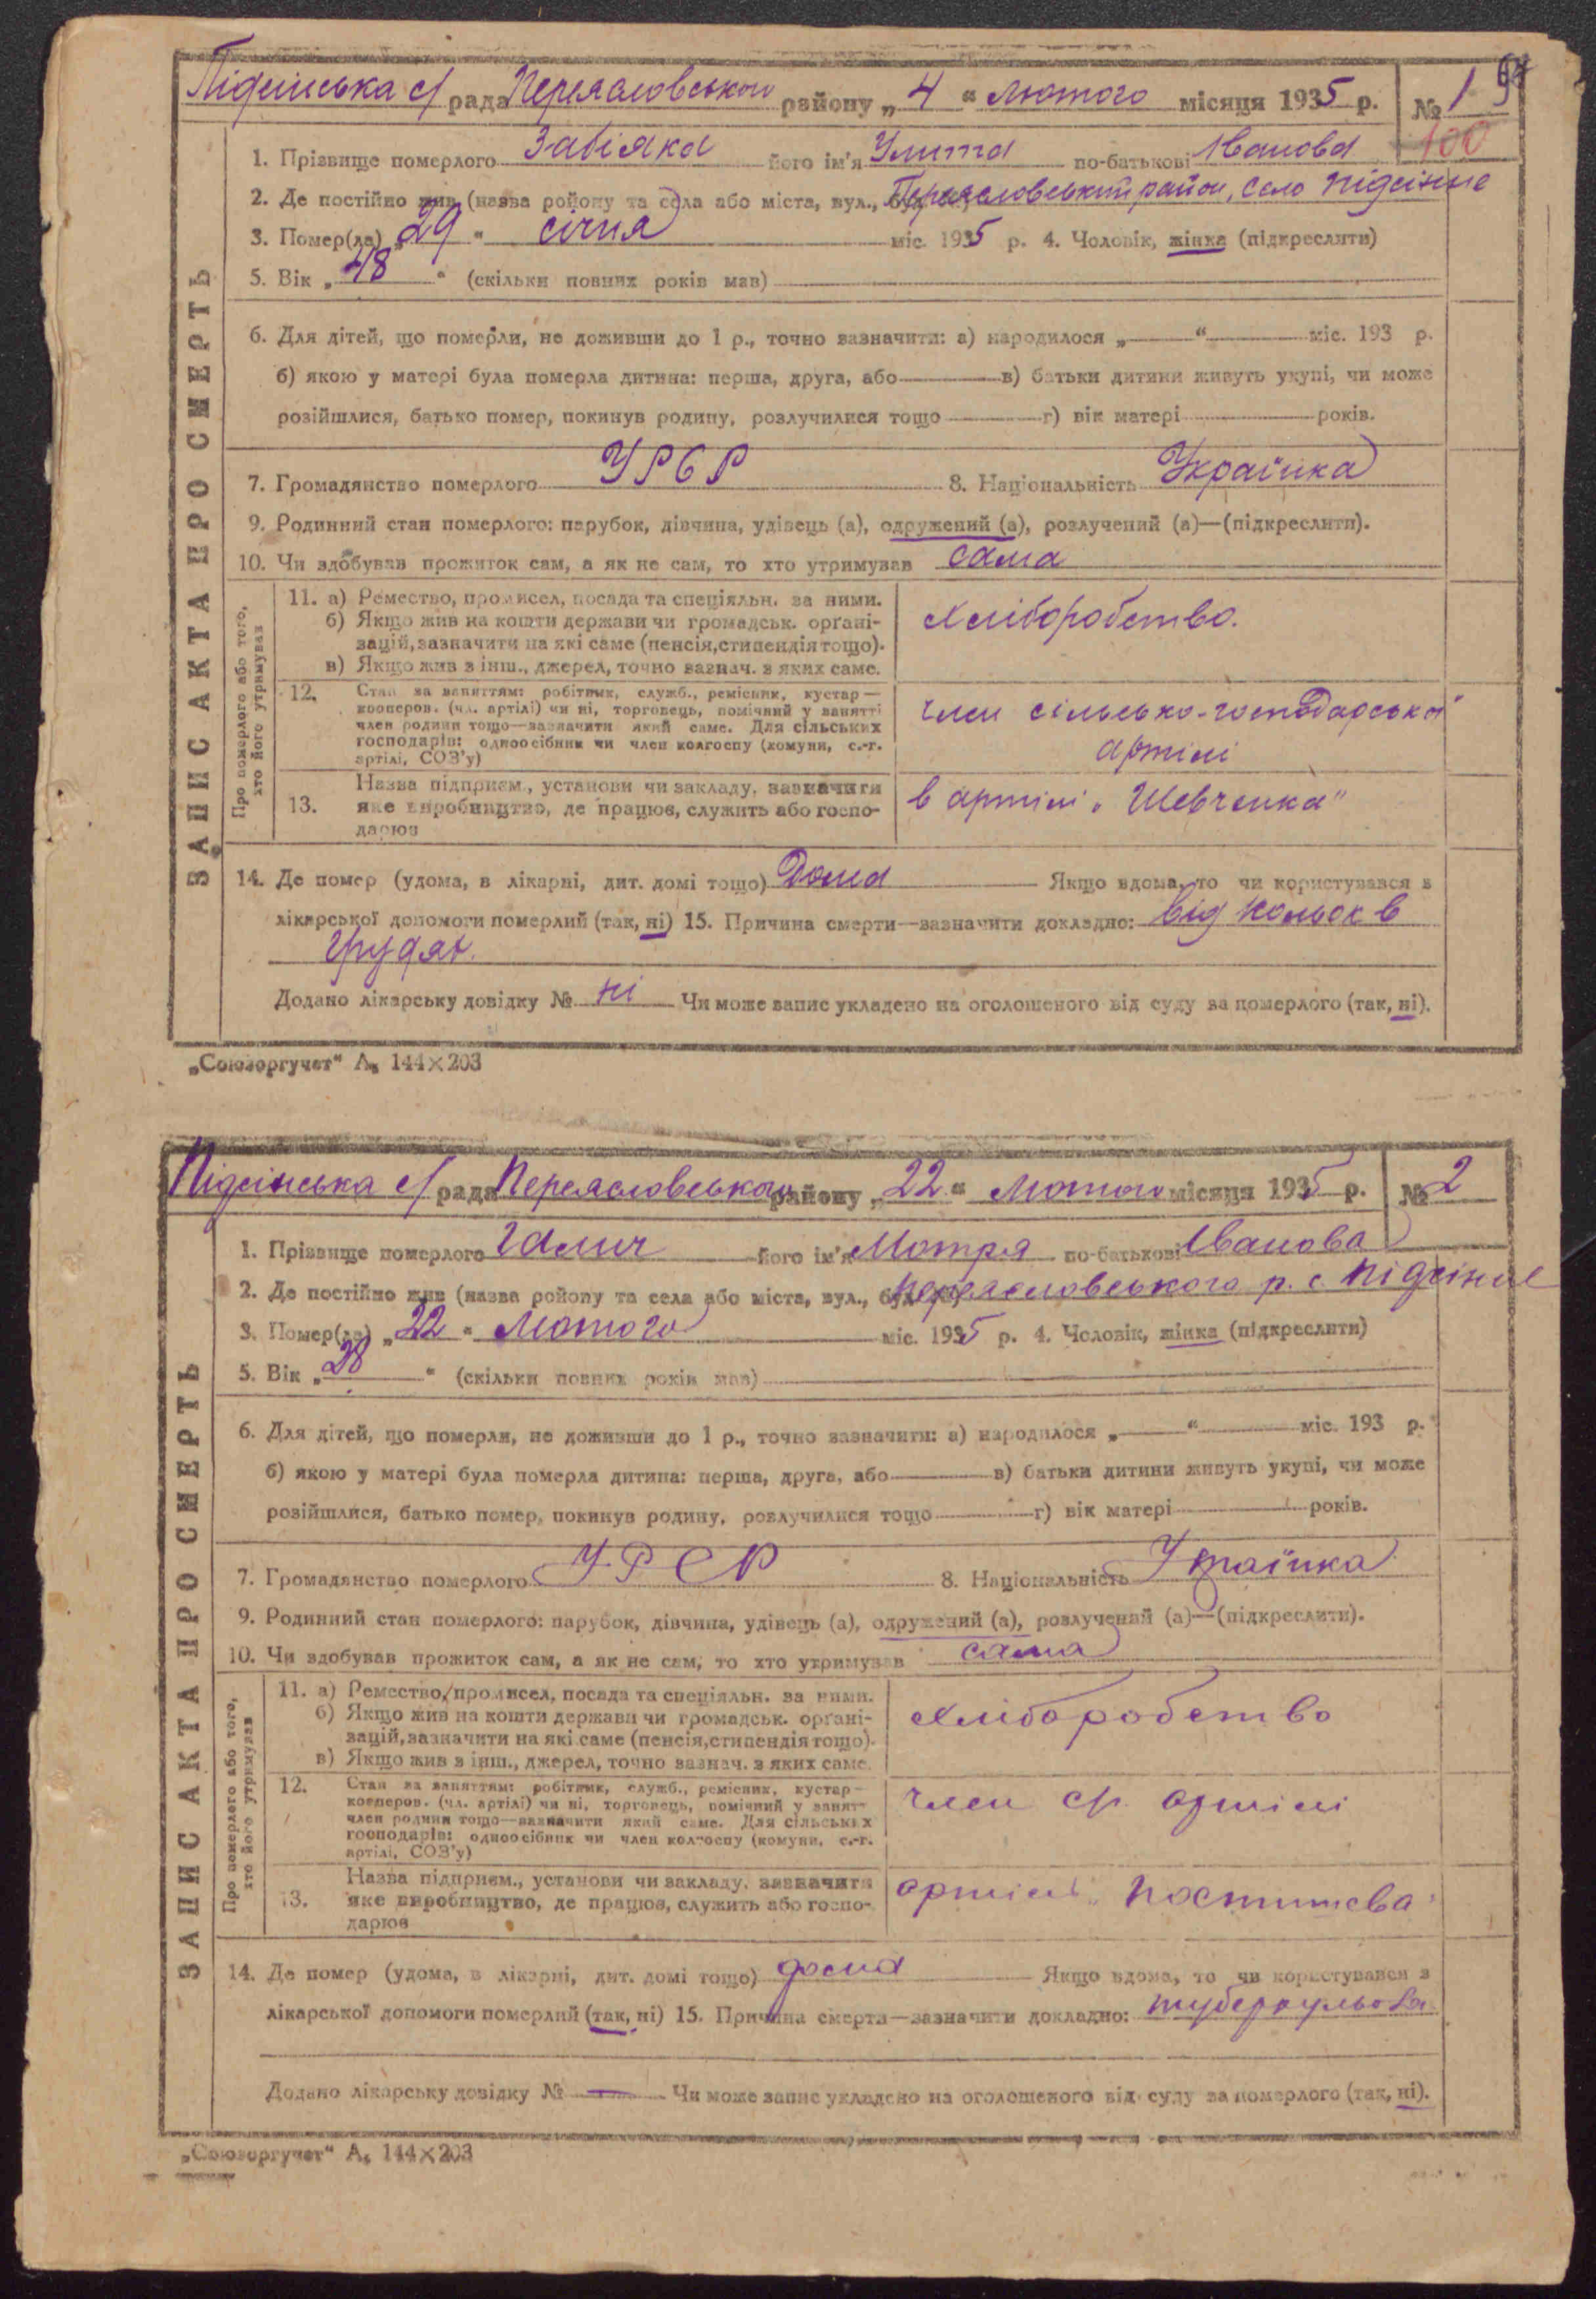 Підсінська с/рада Переясловського району „4“ лютого місяця 1935 р. № 1
100
ЗАПИС АКТА ПРО СМЕРТЬ
1. Прізвище померлого Забіяка його ім'я Улита по-батькові Іванова
2. Де постійно жив (назва району та села або міста, вул., Переясловський район, село Підсінне
3. Помер(ла) „29“ січня міс. 1935 р. 4. Чоловік, жінка (підкреслити)
5. Вік „48“ (скільки повних років мав)
6. Для дітей, що померли, не доживши до 1 р., точно зазначити: а) народилося „ “ міс. 193 р.
б) якою у матері була померла дитина: перша, друга, або в) батьки дитини живуть укупі, чи може
розійшлися, батько помер, покинув родину, розлучилися тощо г) вік матері років.
7. Громадянство померлого УРСР 8. Національність Українка
9. Родинний стан померлого: парубок, дівчина, удівець (а), одружений (а), розлучений (а)—(підкреслити).
10. Чи здобував прожиток сам, а як не сам, то хто утримував сама
Про померлого або того,
хто його утримував
11. а) Ремество, промисел, посада та спеціяльн. за ними.
б) Якщо жив на кошти держави чи громадськ. орґані-
зацій, зазначити на які саме (пенсія, стипендія тощо).
в) Якщо жив з інш., джерел, точно зазнач. з яких саме.
Хліборобство.
12. Стан за заняттям: робітник, служб., ремісник, кустар—
кооперов. (чл. артілі) чи ні, торговець, помічний у занятті
член родини тощо—зазначити який саме. Для сільських
господарів: одноосібник чи член колгоспу (комуни, с.-г.
артілі, СОЗ'у)
член сільсько-господарської
артілі
13. Назва підприєм., установи чи закладу, зазначити
яке виробництво, де працює, служить або госпо-
дарює
в артілі „Шевченка"
14. Де помер (удома, в лікарні, дит. домі тощо) Дома Якщо вдома, то чи користувався з
лікарської допомоги померлий (так, ні) 15. Причина смерти—зазначити докладно: від кольок в
грудях.
Додано лікарську довідку № ні Чи може запис укладено на оголошеного від суду за померлого (так, ні).
„Союзоргучет“ А₅ 144×203
Підсінська с/рада Переясловського району „22“ лютого місяця 1935 р. № 2
ЗАПИС АКТА ПРО СМЕРТЬ
1. Прізвище померлого Галич його ім'я Мотря по-батькові Іванова
2. Де постійно жив (назва району та села або міста, вул., Переясловського р. с. Підсінне
3. Помер(ла) „22“ Лютого міс. 1935 р. 4. Чоловік, жінка (підкреслити)
5. Вік „28“ (скільки повних років мав)
6. Для дітей, що померли, не доживши до 1 р., точно зазначити: а) народилося „ “ міс. 193 р.
б) якою у матері була померла дитина: перша, друга, або в) батьки дитини живуть укупі, чи може
розійшлися, батько помер, покинув родину, розлучилися тощо г) вік матері років.
7. Громадянство померлого УРСР 8. Національність Українка
9. Родинний стан померлого: парубок, дівчина, удівець (а), одружений (а), розлучений (а)—(підкреслити).
10. Чи здобував прожиток сам, а як не сам, то хто утримував сама
Про померлого або того,
хто його утримував
11. а) Ремество, промисел, посада та спеціяльн. за ними.
б) Якщо жив на кошти держави чи громадськ. орґані-
зацій, зазначити на які саме (пенсія, стипендія тощо).
в) Якщо жив з інш., джерел, точно зазнач. з яких саме.
Хліборобство
12. Стан за заняттям: робітник, служб., ремісник, кустар—
кооперов. (чл. артілі) чи ні, торговець, помічний у занят-
член родини тощо—зазначити який саме. Для сільських
господарів: одноосібник чи член колгоспу (комуни, с.-г.
артілі, СОЗ'у)
член ср. артілі
13. Назва підприєм., установи чи закладу, зазначити
яке виробництво, де працює, служить або госпо-
дарює
артіль „Постишева"
14. Де помер (удома, в лікарні, дит. домі тощо) дома Якщо вдома, то чи користувався з
лікарської допомоги померлий (так, ні) 15. Причина смерти—зазначити докладно: туберкульоза
Додано лікарську довідку № — Чи може запис укладено на оголошеного від суду за померлого (так, ні).
„Союзоргучет“ А₅ 144×203